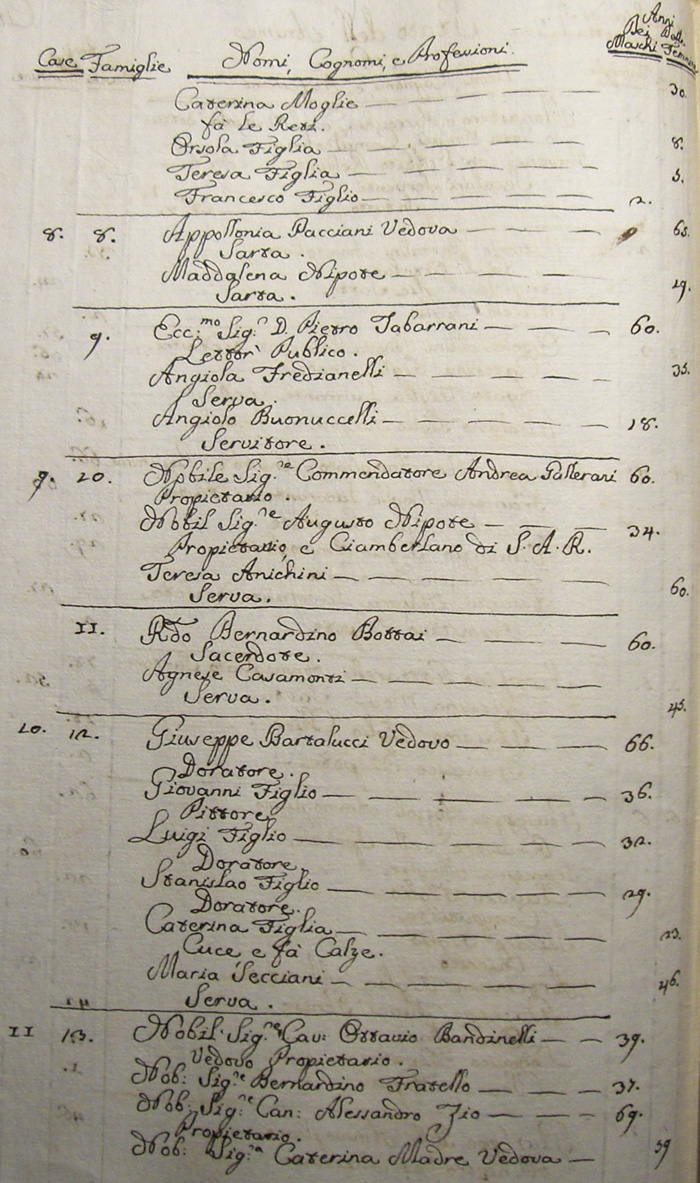 Anni
Dei Delle
Case Famiglie Nomi, Cognomi, e Professioni. Maschi Femmine
Caterina Moglie 30.
fà le Reti.
Orsola Figlia 8.
Teresa Figlia 5.
Francesco Figlio 2.
8. 8. Appollonia Pacciani Vedova 65.
Sarta.
Maddalena Nipote 19.
Sarta.
9. Ecc:mo Sig:r D. Pietro Tabarrani 60.
Lettor Publico.
Angiola Fredianelli 35.
Serva.
Angiolo Buonuccelli 18.
Servitore.
9. 10. Nobile Sig:re Commendatore Andrea Gallerani 60.
Propietario.
Nobil Sig:re Augusto Nipote 34.
Propietario, e Ciamberlano di S. A. R.
Teresa Anichini 60.
Serva.
11. Rdo Bernardino Bottai 60.
Sacerdote.
Agnese Casamonti 45.
Serva.
10. 12. Giuseppe Bartalucci Vedovo 66.
Doratore.
Giovanni Figlio 36.
Pittore
Luigi Figlio 32.
Doratore.
Stanislao Figlio 29.
Doratore.
Caterina Figlia 23.
Cuce e fà Calze.
Maria Secciani 46.
Serva.
11 13. Nobil Sig:re Cav: Ottavio Bandinelli 39.
Vedovo Propietario.
Nob: Sig:re Bernardino Fratello 37.
Nob: Sig:re Can: Alessandro Zio 69.
Propietario.
Nob: Sig:ra Caterina Madre Vedova 59